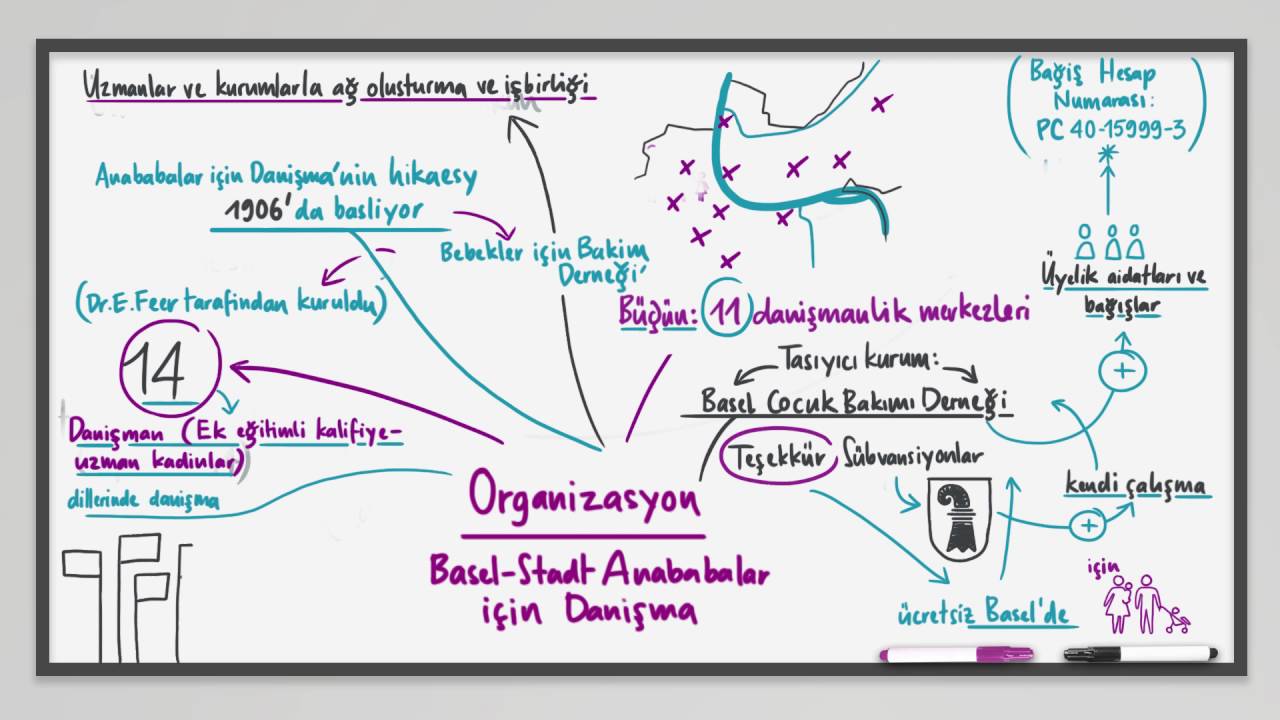 Uzmanlar ve kurumlarla ağ olusturma ve işbirliği
Anababalar için Danişma'nin hikaesy
1906'da basliyor
Bebekler için Bakim
Derneği'
(Dr.E.Feer tarafindan kuruldu)
14
Danişman (Ek eğitimli kalifiye-
uzman kadinlar)
dillerinde danişma
Organizasyon
Basel-Stadt Anababalar
için Danişma
Büğün: 11 danişmanlik merkezleri
Tasıyıcı kurum:
Basel Çocuk Bakımı Derneği
Teşekkür Sübvansiyonlar
ücretsiz Basel'de
için
kendi çalışma
Üyelik aidatları ve
bağışlar
(Bağiş Hesap
Numarası:
PC 40-15999-3)